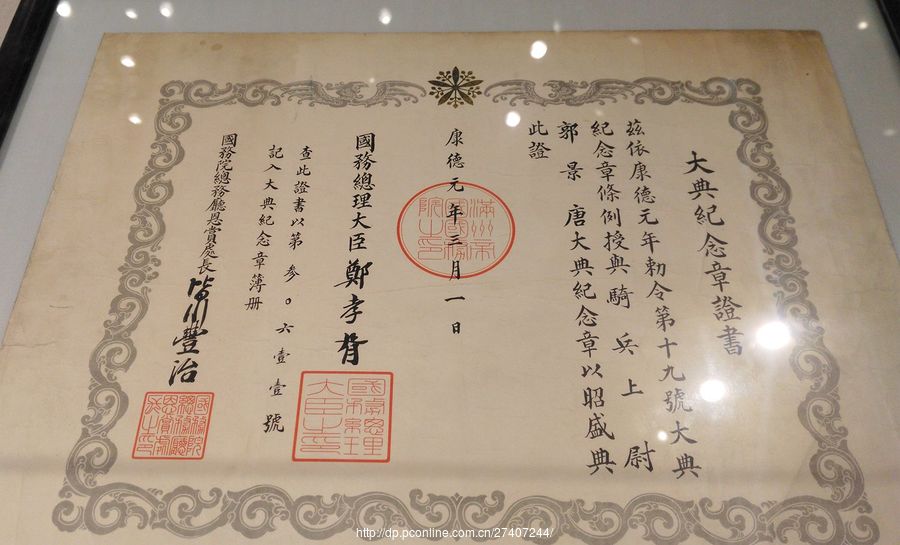 大典紀念章證書
茲依康德元年勅令第十九號大典
紀念章條例授與騎兵上尉
郭景唐大典紀念章以昭盛典
此證
康德元年三月一日
滿洲帝國國務院之印
國務總理大臣 鄭孝胥
國務總理大臣之印
查此證書以第參〇六壹壹號
記入大典紀念章簿册
國務院總務廳恩賞處長 皆川豐治
國務院總務廳恩賞處長之印
http://dp.pconline.com.cn/27407244/